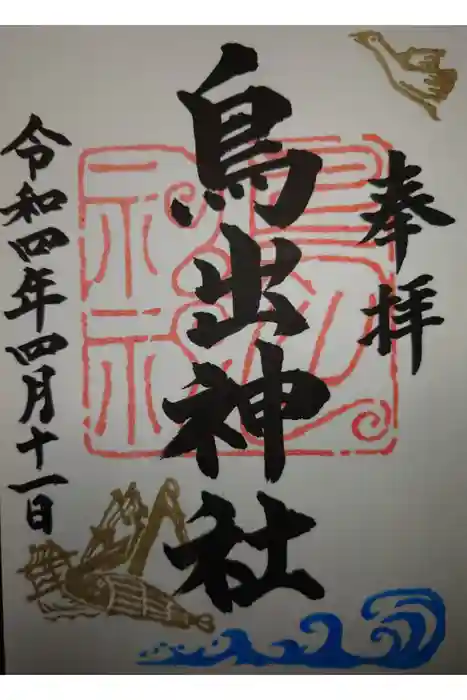 奉拝
鳥出神社
令和四年四月十一日